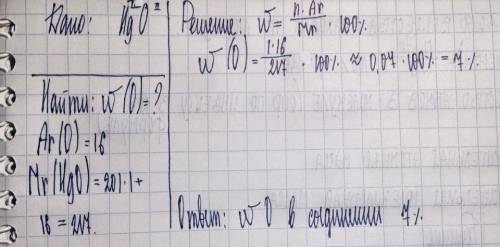 Дано: Hg⁺²O⁻²
Найти: w(O)=?
Ar(O)=16
Mr(HgO)=201·1+
16=217.
Решение: w = n·Ar/Mr · 100%
w(O) = 1·16/217 · 100% ≈ 0,07·100% = 7%
Ответ: w O в соединении 7%.